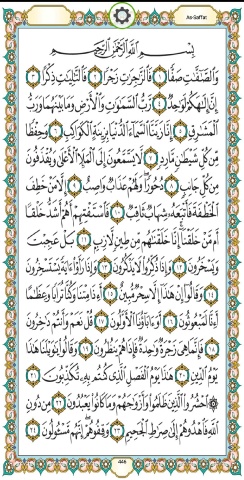 As-Saffat
بِسْمِ ٱللَّهِ ٱلرَّحْمَٰنِ ٱلرَّحِيمِ
وَٱلصَّٰٓفَّٰتِ صَفًّا ١ فَٱلزَّٰجِرَٰتِ زَجْرًا ٢ فَٱلتَّٰلِيَٰتِ ذِكْرًا ٣
إِنَّ إِلَٰهَكُمْ لَوَٰحِدٌ ٤ رَّبُّ ٱلسَّمَٰوَٰتِ وَٱلْأَرْضِ وَمَا بَيْنَهُمَا وَرَبُّ
ٱلْمَشَٰرِقِ ٥ إِنَّا زَيَّنَّا ٱلسَّمَآءَ ٱلدُّنْيَا بِزِينَةٍ ٱلْكَوَاكِبِ ٦ وَحِفْظًا
مِّن كُلِّ شَيْطَٰنٍ مَّارِدٍ ٧ لَّا يَسَّمَّعُونَ إِلَى ٱلْمَلَإِ ٱلْأَعْلَىٰ وَيُقْذَفُونَ
مِن كُلِّ جَانِبٍ ٨ دُحُورًا وَلَهُمْ عَذَابٌ وَاصِبٌ ٩ إِلَّا مَنْ خَطِفَ
ٱلْخَطْفَةَ فَأَتْبَعَهُۥ شِهَابٌ ثَاقِبٌ ١٠ فَٱسْتَفْتِهِمْ أَهُمْ أَشَدُّ خَلْقًا
أَم مَّنْ خَلَقْنَآ إِنَّا خَلَقْنَٰهُم مِّن طِينٍ لَّازِبٍۭ ١١ بَلْ عَجِبْتَ
وَيَسْخَرُونَ ١٢ وَإِذَا ذُكِّرُوا۟ لَا يَذْكُرُونَ ١٣ وَإِذَا رَأَوْا۟ ءَايَةً يَسْتَسْخِرُونَ
١٤ وَقَالُوٓا۟ إِنْ هَٰذَآ إِلَّا سِحْرٌ مُّبِينٌ ١٥ أَءِذَا مِتْنَا وَكُنَّا تُرَابًا وَعِظَٰمًا
أَءِنَّا لَمَبْعُوثُونَ ١٦ أَوَءَابَآؤُنَا ٱلْأَوَّلُونَ ١٧ قُلْ نَعَمْ وَأَنتُمْ دَٰخِرُونَ
١٨ فَإِنَّمَا هِىَ زَجْرَةٌ وَٰحِدَةٌ فَإِذَا هُمْ يَنظُرُونَ ١٩ وَقَالُوا۟ يَٰوَيْلَنَا هَٰذَا
يَوْمُ ٱلدِّينِ ٢٠ هَٰذَا يَوْمُ ٱلْفَصْلِ ٱلَّذِى كُنتُم بِهِۦ تُكَذِّبُونَ ٢١
۞ ٱحْشُرُوا۟ ٱلَّذِينَ ظَلَمُوا۟ وَأَزْوَٰجَهُمْ وَمَا كَانُوا۟ يَعْبُدُونَ ٢٢ مِن دُونِ
ٱللَّهِ فَٱهْدُوهُمْ إِلَىٰ صِرَٰطِ ٱلْجَحِيمِ ٢٣ وَقِفُوهُمْ إِنَّهُم مَّسْـُٔولُونَ ٢٤
446